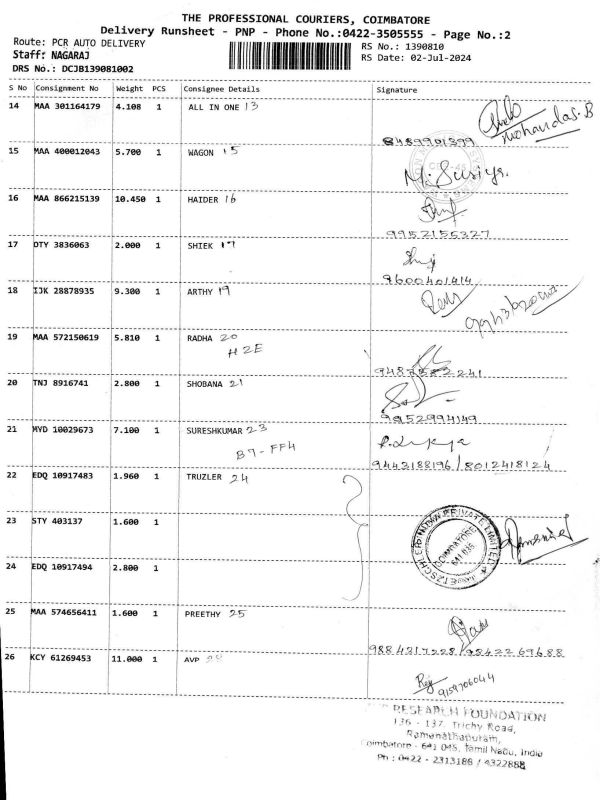 THE PROFESSIONAL COURIERS, COIMBATORE
Delivery Runsheet - PNP - Phone No.:0422-3505555 - Page No.:2
Route: PCR AUTO DELIVERY
RS No.: 1390810
Staff: NAGARAJ
RS Date: 02-Jul-2024
DRS No.: DCJB139081002
S No Consignment No Weight PCS Consignee Details Signature
14 MAA 301164179 4.108 1 ALL IN ONE 13
mohandas.B
8489901399
15 MAA 400012043 5.700 1 WAGON 15
M. Suriya.
16 MAA 866215139 10.450 1 HAIDER 16
9952155327
17 OTY 3836063 2.000 1 SHIEK 17
9600401414
18 IJK 28878935 9.300 1 ARTHY 19
19 MAA 572150619 5.810 1 RADHA 20
H2E
20 TNJ 8916741 2.800 1 SHOBANA 21
9952994149
21 MYD 10029673 7.100 1 SURESHKUMAR 23
B7-FF4
9442188196/8012418124
22 EDQ 10917483 1.960 1 TRUZLER 24
23 STY 403137 1.600 1
COIMBATORE
24 EDQ 10917494 2.800 1
25 MAA 574656411 1.600 1 PREETHY 25
26 KCY 61269453 11.000 1 AVP
9159706044
RESEARCH FOUNDATION
136 - 137, Trichy Road,
Ramanathapuram,
Coimbatore - 641 045, Tamil Nadu, India
Ph : 0422 - 2313188 / 4322888